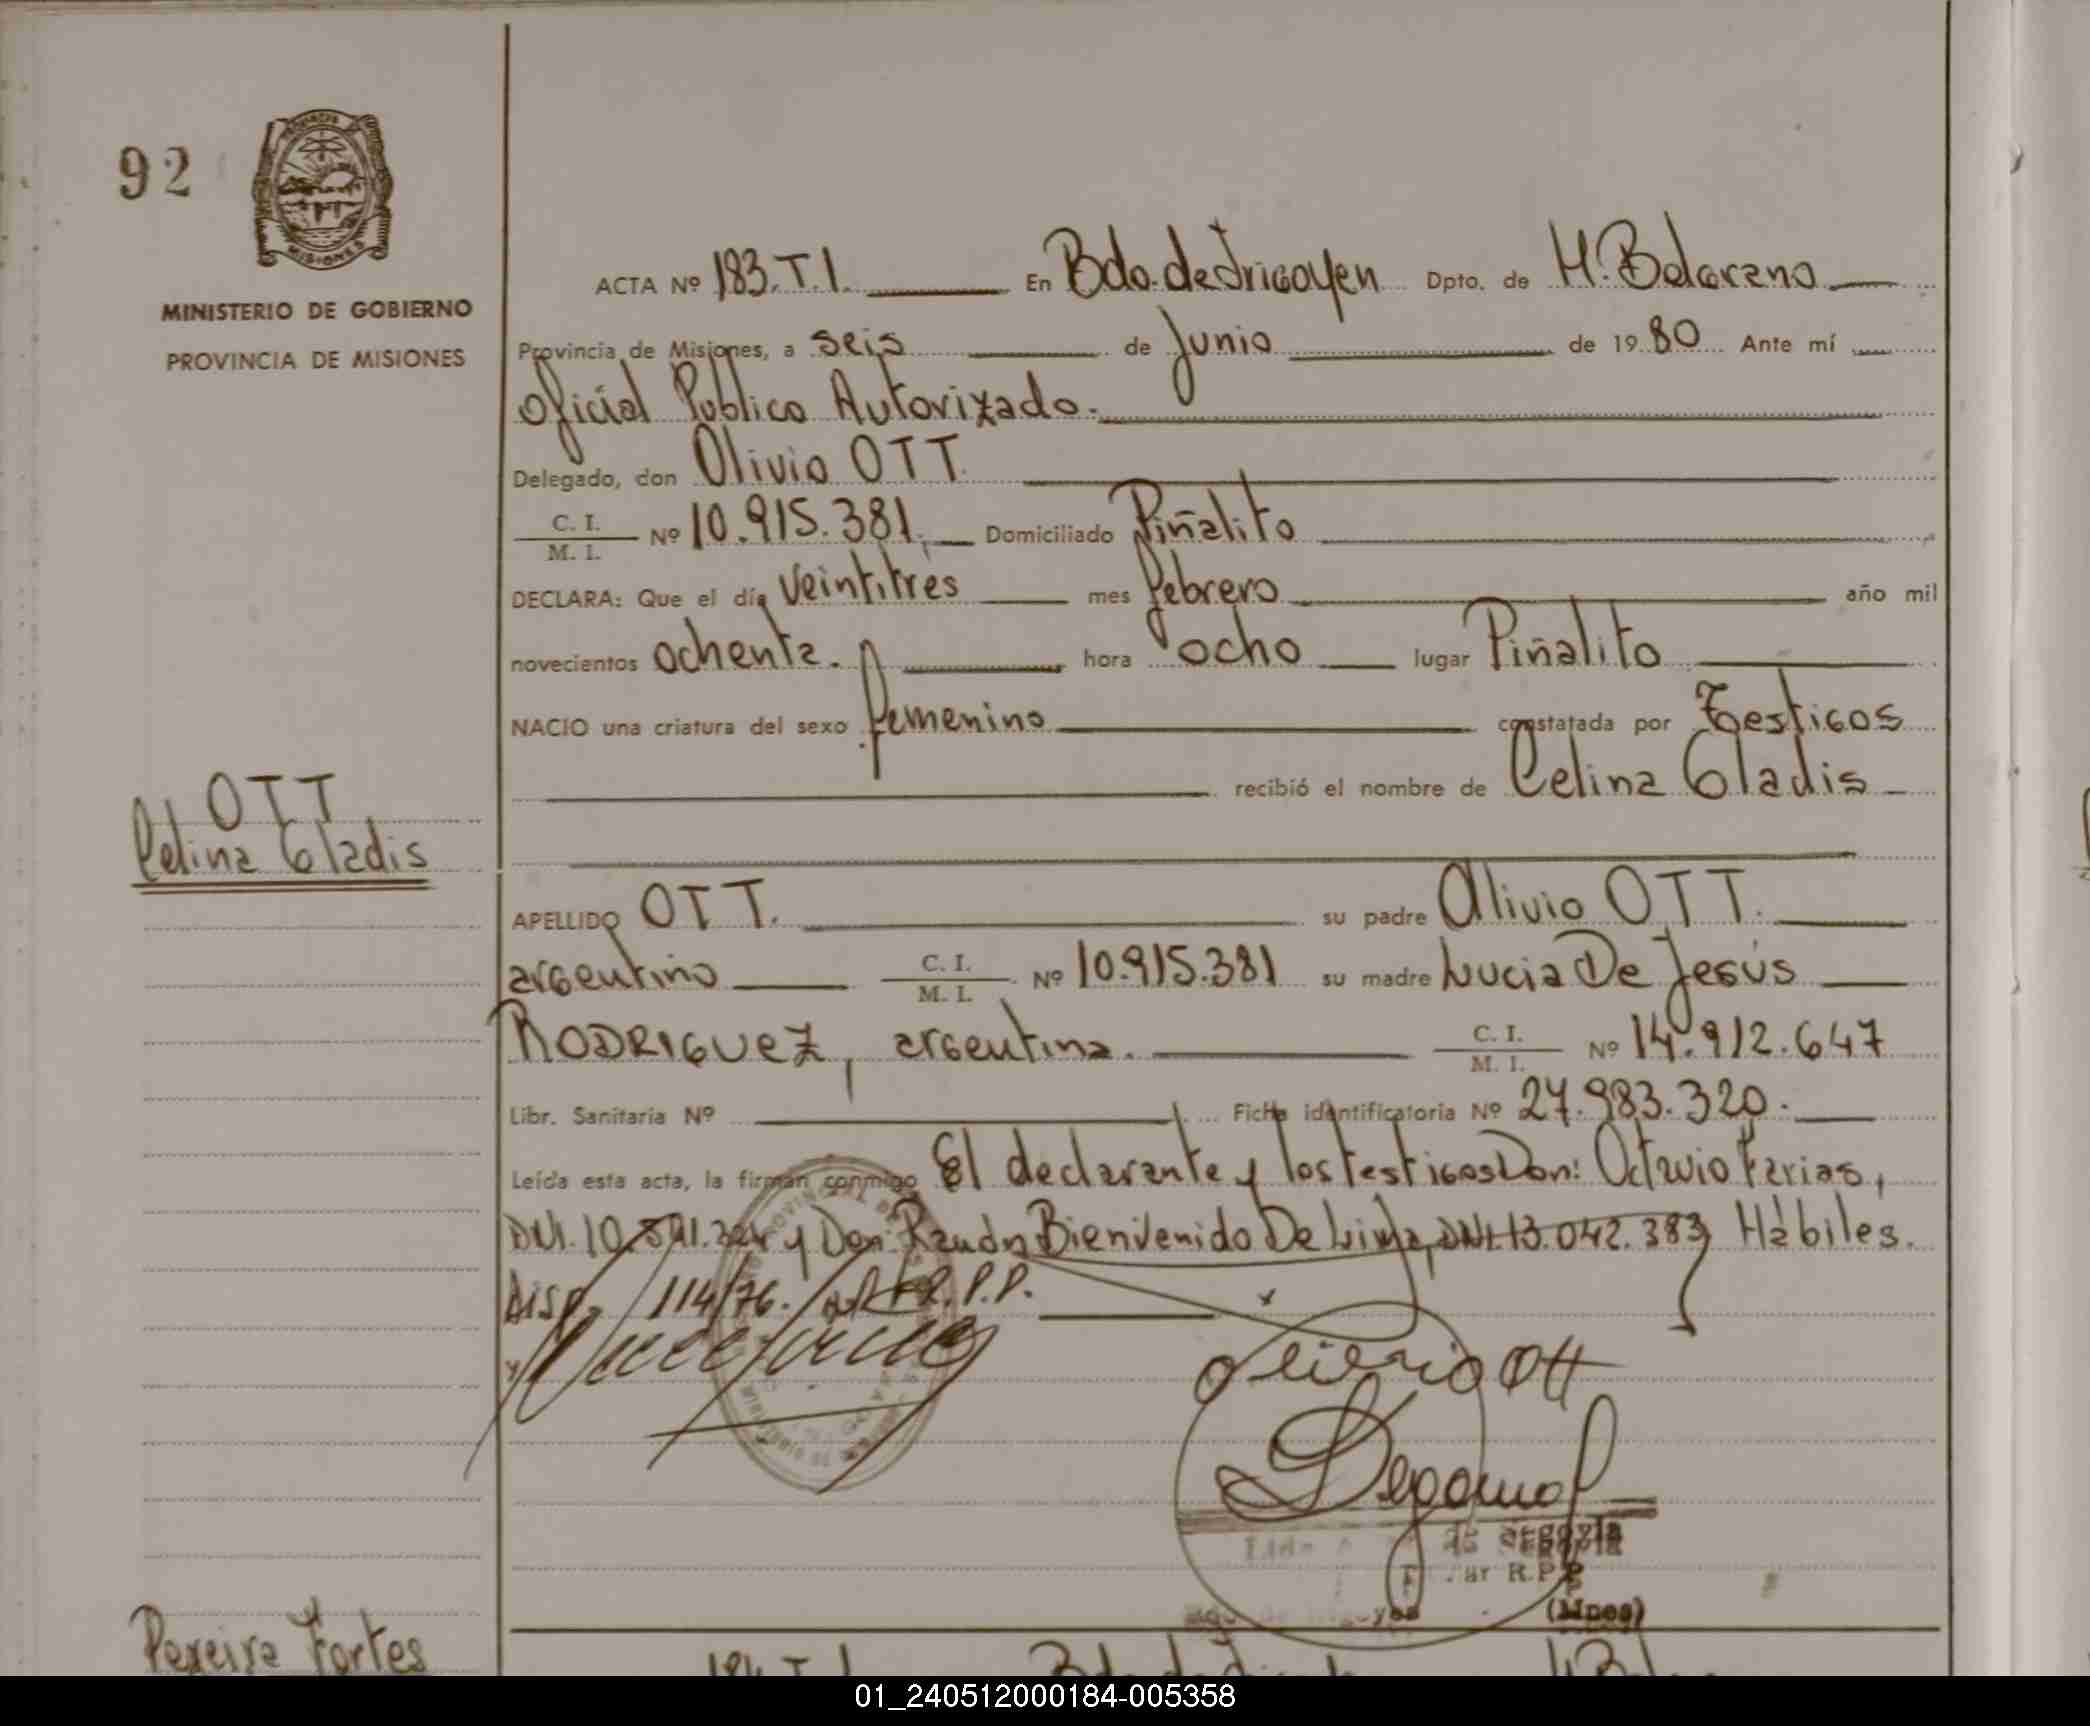 92
PROVINCIA DE
MISIONES
MINISTERIO DE GOBIERNO
PROVINCIA DE MISIONES
ACTA Nº 183.T.I. En Bdo. de Irigoyen Dpto. de M. Belgrano
Provincia de Misiones, a seis de Junio de 1980 Ante mí
Oficial Público Autorizado.
Delegado, don Olivio OTT.
C. I. / M. I. Nº 10.915.381, Domiciliado Piñalito
DECLARA: Que el día veintitrés mes febrero año mil
novecientos ochenta. hora ocho lugar Piñalito
NACIO una criatura del sexo femenino constatada por Testigos
recibió el nombre de Celina Gladis
OTT
Celina Gladis
APELLIDO OTT. su padre Olivio OTT.
argentino C. I. / M. I. Nº 10.915.381 su madre Lucia De Jesús
RODRIGUEZ, argentina. C. I. / M. I. Nº 14.912.647
Libr. Sanitaria Nº Ficha identificatoria Nº 27.983.320.
Leída esta acta, la firman conmigo El declarante y los testigos Don: Octavio Farias,
DNI. 10. y Don Ramón Bienvenido De Lima, DNI. 13.042.383, Hábiles.
Disp. 114/76. R.P.P.
Olivio Ott
R.P.P
(Mnes)
Pereira Fortes
184.T.I
01_240512000184-005358